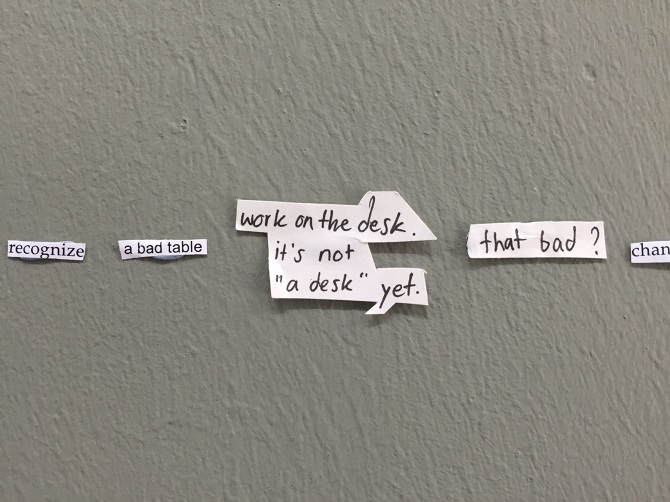 recognize
a bad table
work on the desk.
it's not
"a desk" yet.
that bad?
chan